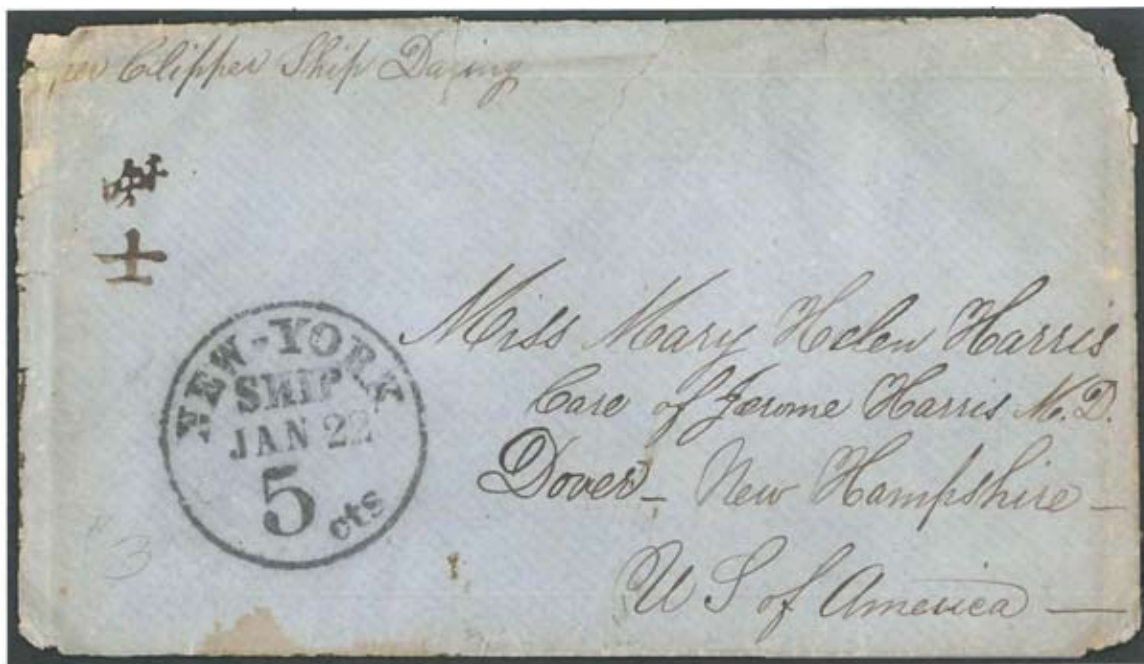 per Clipper Ship Daring
士
NEW-YORK
SHIP
JAN 22
5 cts
Miss Mary Helen Harris
Care of Jerome Harris M.D.
Dover - New Hampshire -
U S of America -
3